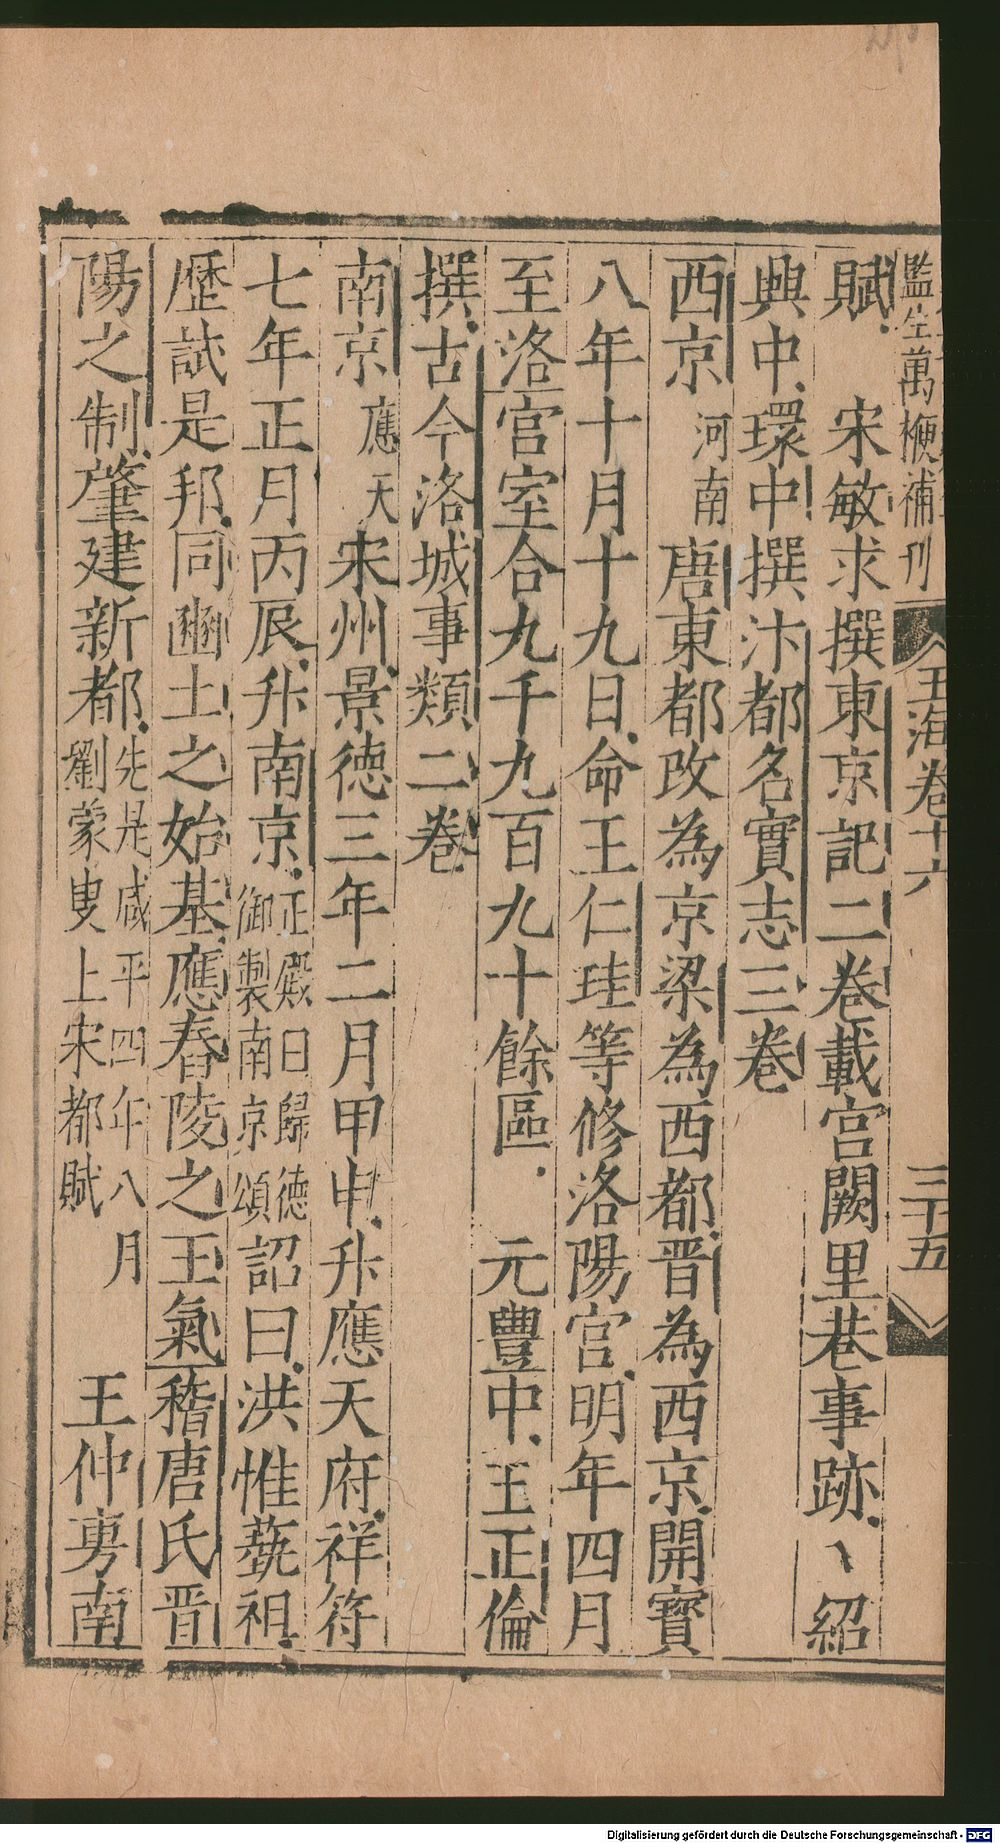 監生萬楩補刊 玉海卷十六 三十五
賦 宋敏求撰東京記二卷載宮闕里巷事跡 紹
興中環中撰汴都名實志三卷
西京 河南 唐東都改為京梁為西都晋為西京開寶
八年十月十九日命王仁珪等修洛陽宮明年四月
至洛宮室合九千九百九十餘區 元豐中王正倫
撰古今洛城事類二卷
南京 應天 宋州景德三年二月甲申升應天府祥符
七年正月丙辰升南京 正殿曰歸德御製南京頌 詔曰洪惟蓺祖
歷試是邦同豳土之始基應舂陵之王氣稽唐氏晋
陽之制肇建新都 先是咸平四年八月劉蒙叟上宋都賦 王仲旉南
Digitalisierung gefördert durch die Deutsche Forschungsgemeinschaft - DFG